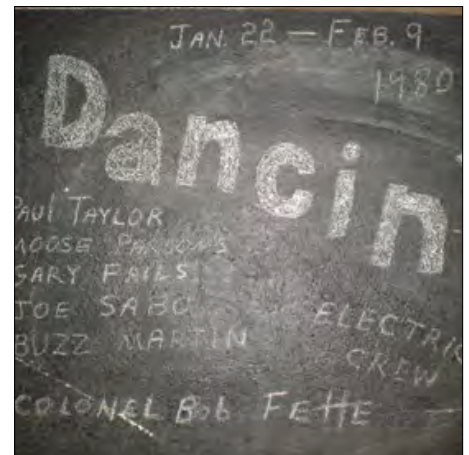 JAN. 22 — FEB. 9
1980
Dancin
PAUL TAYLOR
MOOSE PARSONS
GARY FAILS
JOE SABO
BUZZ MARTIN
ELECTRIC
CREW
COLONEL Bob FEHE